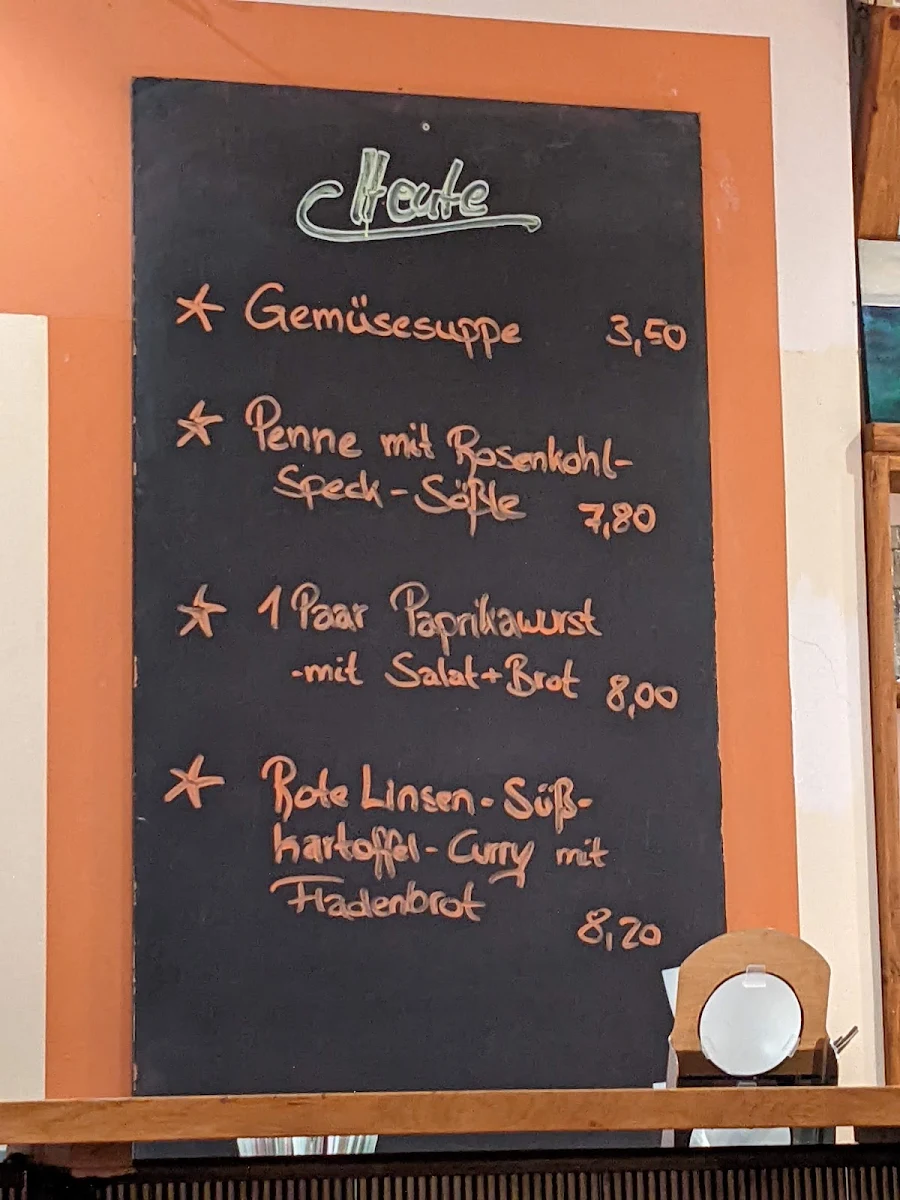 Heute
* Gemüsesuppe 3,50
* Penne mit Rosenkohl-
Speck-Sößle 7,80
* 1 Paar Paprikawurst
-mit Salat+Brot 8,00
* Rote Linsen-Süß-
kartoffel-Curry mit
Fladenbrot
8,20